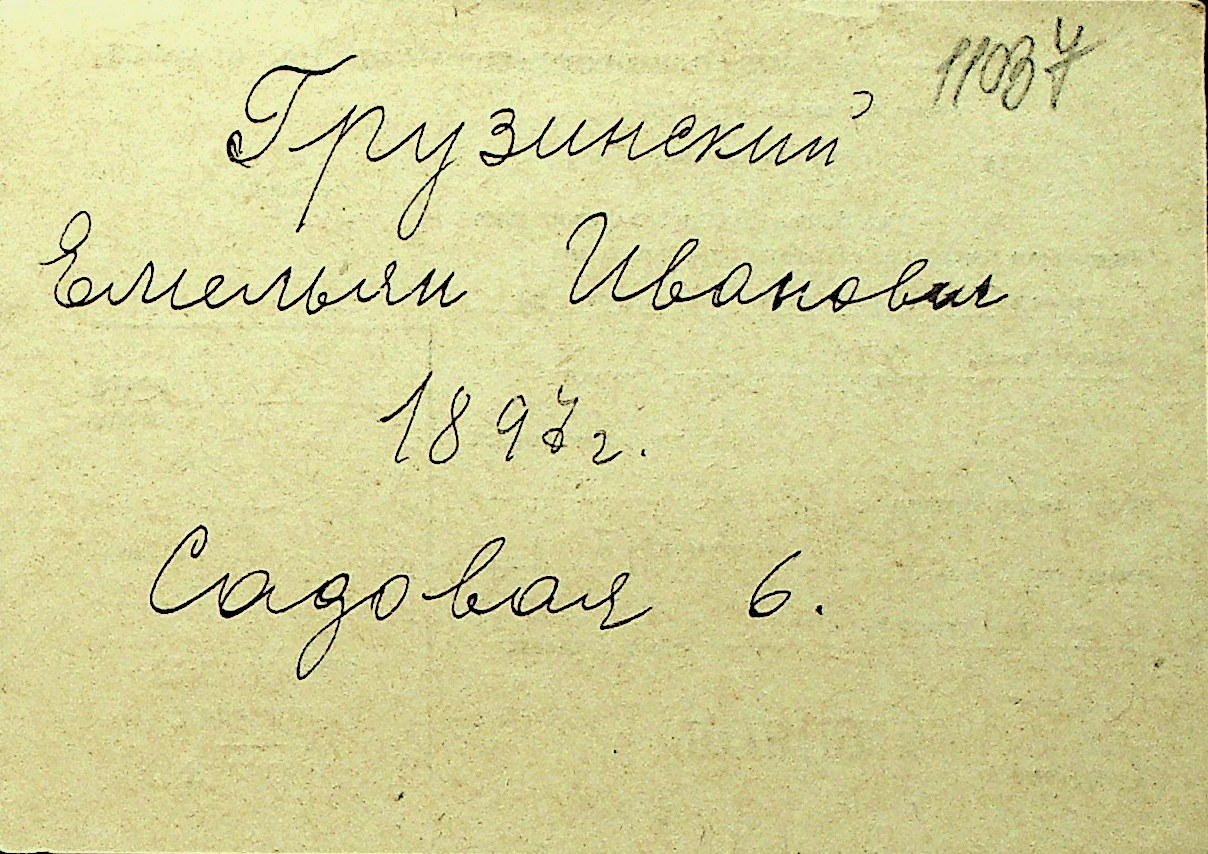 11037
Грузинский
Емельян Иванович
1897 г.
Садовая 6.